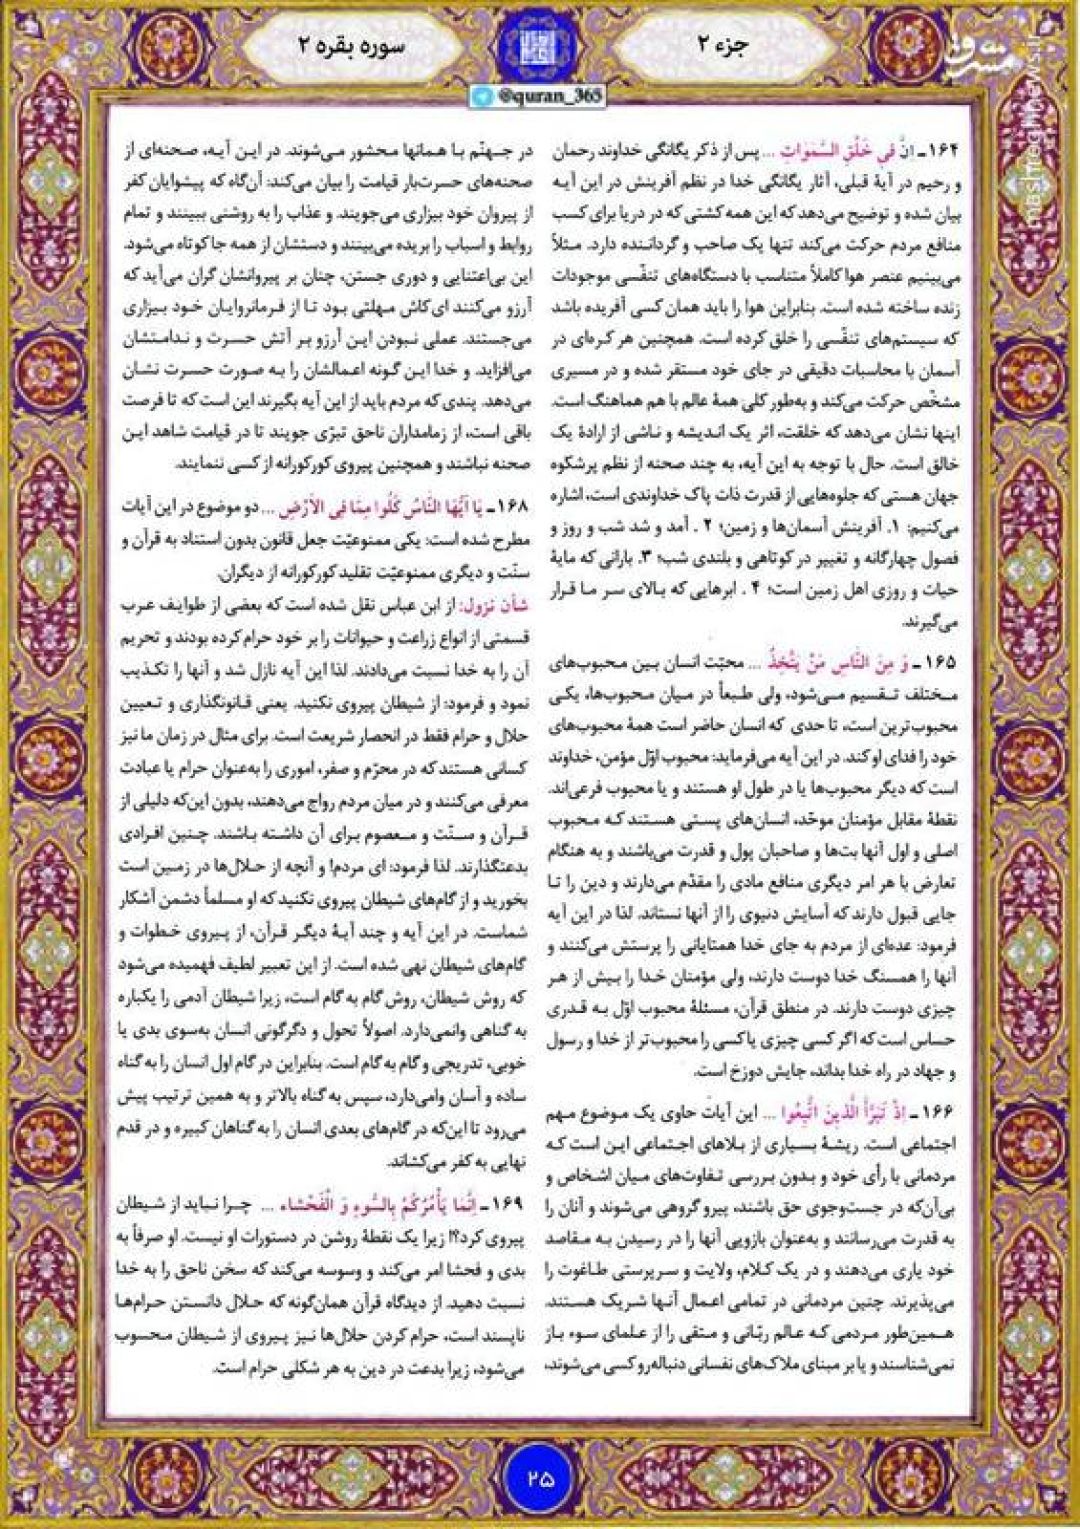 جزء ۲
سوره بقره ۲
مشرق
mashreghnews.ir
@quran_365
۱۶۴ـ انَّ فی خَلْقِ السَّمَوَاتِ ... پس از ذکر یگانگی خداوند رحمان
و رحیم در آیهٔ قبلی، آثار یگانگی خدا در نظم آفرینش در این آیـه
بیان شده و توضیح می‌دهد که این همه کشتی که در دریا برای کسب
منافع مردم حرکت می‌کند تنها یک صاحب و گرداننده دارد. مـثلاً
می‌بینیم عنصر هوا کاملاً متناسب با دستگاه‌های تنفّسی موجودات
زنده ساخته شده است. بنابراین هوا را باید همان کسی آفریده باشد
که سیستم‌های تنفّسی را خلق کرده است. همچنین هر کره‌ای در
آسمان با محاسبات دقیقی در جای خود مستقر شده و در مسیری
مشخّص حرکت می‌کند و به‌طور کلی همهٔ عالم با هم هماهنگ است.
اینها نشان می‌دهد که خلقت، اثر یک اندیشه و ناشی از ارادهٔ یک
خالق است. حال با توجه به این آیه، به چند صحنه از نظم پرشکوه
جهان هستی که جلوه‌هایی از قدرت ذات پاک خداوندی است، اشاره
می‌کنیم: ۱. آفرینش آسمان‌ها و زمین؛ ۲. آمد و شد شب و روز و
فصول چهارگانه و تغییر در کوتاهی و بلندی شب؛ ۳. بارانی که مایهٔ
حیات و روزی اهل زمین است؛ ۴. ابرهایی که بـالای سر مـا قـرار
می‌گیرند.
۱۶۵ـ وَ مِنَ النَّاسِ مَنْ یَتَّخِذُ ... محبّت انسان بین محبوب‌های
مـختلف تـقسیم مـی‌شود، ولی طبعاً در میان محبوب‌ها، یکـی
محبوب‌ترین است، تا حدی که انسان حاضر است همهٔ محبوب‌های
خود را فدای او کند. در این آیه می‌فرماید: محبوب اوّل مؤمن، خداوند
است که دیگر محبوب‌ها یا در طول او هستند و یا محبوب فرعی‌اند.
نقطهٔ مقابل مؤمنان موحّد، انسان‌های پستی هستند کـه محبوب
اصلی و اول آنها بت‌ها و صاحبان پول و قدرت می‌باشند و به هنگام
تعارض با هر امر دیگری منافع مادی را مقدّم می‌دارند و دین را تـا
جایی قبول دارند که آسایش دنیوی را از آنها نستاند. لذا در این آیه
فرمود: عده‌ای از مردم به جای خدا همتایانی را پرستش می‌کنند و
آنها را همسنگ خدا دوست دارند، ولی مؤمنان خـدا را بـیش از هـر
چیزی دوست دارند. در منطق قرآن، مسئلهٔ محبوب اوّل بـه قـدری
حساس است که اگر کسی چیزی یا کسی را محبوب‌تر از خدا و رسول
و جهاد در راه خدا بداند، جایش دوزخ است.
۱۶۶ـ اِذْ تَبَرَّأَ الَّذِینَ اتُّبِعُوا ... این آیات حاوی یک مـوضوع مـهم
اجتماعی است. ریشهٔ بسیاری از بـلاهای اجـتماعی ایـن است کـه
مردمانی با رأی خود و بـدون بـررسی تـفاوت‌های مـیان اشـخاص و
بی‌آن‌که در جست‌وجوی حق باشند، پیرو گروهی می‌شوند و آنان را
به قدرت می‌رسانند و به‌عنوان بازویی آنها را در رسیدن بـه مـقاصد
خود یاری می‌دهند و در یک کـلام، ولایت و سـرپرستی طـاغوت را
می‌پذیرند. چنین مردمانی در تمامی اعمال آنـها شریک هستند.
همین‌طور مردمی که عالم ربّانی و مـتقی را از علمای سوء بـاز
نمی‌شناسند و یا بر مبنای ملاک‌های نفسانی دنباله‌رو کسی می‌شوند،
در جـهنّم بـا همانها محشور می‌شوند. در این آیـه، صحنه‌ای از
صحنه‌های حسرت‌بار قیامت را بیان می‌کند: آن‌گاه که پیشوایان کفر
از پیروان خود بیزاری می‌جویند. و عذاب را به روشنی ببینند و تمام
روابط و اسباب را بریده می‌بینند و دستشان از همه جا کوتاه می‌شود.
این بی‌اعتنایی و دوری جستن، چنان بر پیروانشان گران می‌آید که
آرزو می‌کنند ای‌کاش مهلتی بـود تـا از فـرمانروایان خـود بـیزاری
می‌جستند. عملی نبودن این آرزو بر آتش حسرت و ندامتشان
می‌افزاید. و خدا این گونه اعمالشان را به صورت حسرت نشـان
می‌دهد. پندی که مردم باید از این آیه بگیرند این است که تا فرصت
باقی است، از زمامداران ناحق تبرّی جویند تا در قیامت شاهد ایـن
صحنه نباشند و همچنین پیروی کورکورانه از کسی ننمایند.
۱۶۸ـ یَا اَیُّهَا النَّاسُ کُلُوا مِمَّا فِی الاَرْضِ ... دو موضوع در این آیات
مطرح شده است: یکی ممنوعیّت جعل قانون بدون استناد به قرآن و
سنّت و دیگری ممنوعیّت تقلید کورکورانه از دیگران.
شأن نزول: از ابن عباس نقل شده است که بعضی از طوایف عرب
قسمتی از انواع زراعت و حیوانات را بر خود حرام کرده بودند و تحریم
آن را به خدا نسبت می‌دادند. لذا این آیه نازل شد و آنها را تکـذیب
نمود و فرمود: از شیطان پیروی نکنید. یعنی قـانونگذاری و تـعیین
حلال و حرام فقط در انحصار شریعت است. برای مثال در زمان ما نیز
کسانی هستند که در محرّم و صفر، اموری را به‌عنوان حرام یا عبادت
معرفی می‌کنند و در میان مردم رواج می‌دهند، بدون این‌که دلیلی از
قـرآن و سـنّت و مـعصوم بـرای آن داشـته بـاشند. چـنین افـرادی
بدعتگذارند. لذا فرمود: ای مردم! و آنچه از حـلال‌ها در زمـین است
بخورید و از گام‌های شیطان پیروی نکنید که او مسلماً دشمن آشکار
شماست. در این آیه و چند آیهٔ دیگر قـرآن، از پـیروی خـطوات و
گام‌های شیطان نهی شده است. از این تعبیر لطیف فهمیده می‌شود
که روش شیطان، روش گام به گام است، زیرا شیطان آدمی را یکباره
به گناهی وانمی‌دارد. اصولاً تحول و دگرگونی انسان به‌سوی بدی یا
خوبی، تدریجی و گام به گام است. بنابراین در گام اول انسان را به گناه
ساده و آسان وامی‌دارد، سپس به گناه بالاتر و به همین ترتیب پیش
می‌رود تا این‌که در گام‌های بعدی انسان را به گناهان کبیره و در قدم
نهایی به کفر می‌کشاند.
۱۶۹ـ اِنَّمَا یَأْمُرُکُمْ بِالسُّوءِ وَ الْفَحْشَاءِ ... چـرا نـباید از شـیطان
پیروی کرد؟! زیرا یک نقطهٔ روشن در دستورات او نیست. او صرفاً به
بدی و فحشا امر می‌کند و وسوسه می‌کند که سخن ناحق را به خدا
نسبت دهید. از دیدگاه قرآن همان‌گونه که حلال دانستن حرام‌هـا
ناپسند است، حرام کردن حلال‌ها نیز پیروی از شیطان محسوب
می‌شود، زیرا بدعت در دین به هر شکلی حرام است.
۲۵